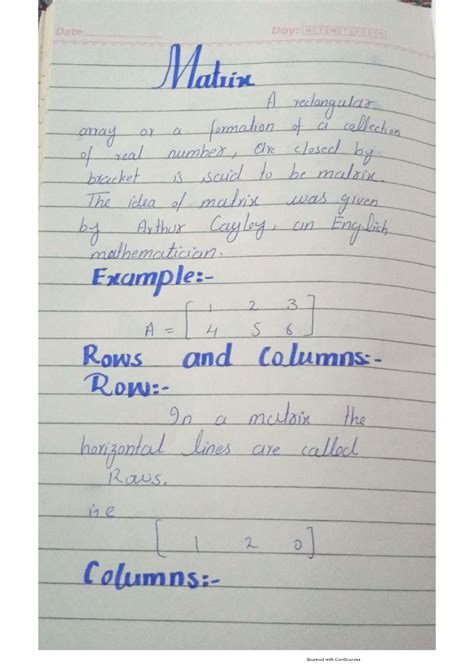 Date: Day: M T W T F S S
Matrix
A rectangular
array or a formation of a collection
of real number, are closed by
bracket is said to be matrix.
The idea of matrix was given
by Arthur Cayley, an English
mathematician.
Example:-
A = [ 1 2 3
4 5 6 ]
Rows and Columns:-
Row:-
In a matrix the
horizontal lines are called
Rows.
i.e
[ 1 2 0 ]
Columns:-
Scanned with CamScanner